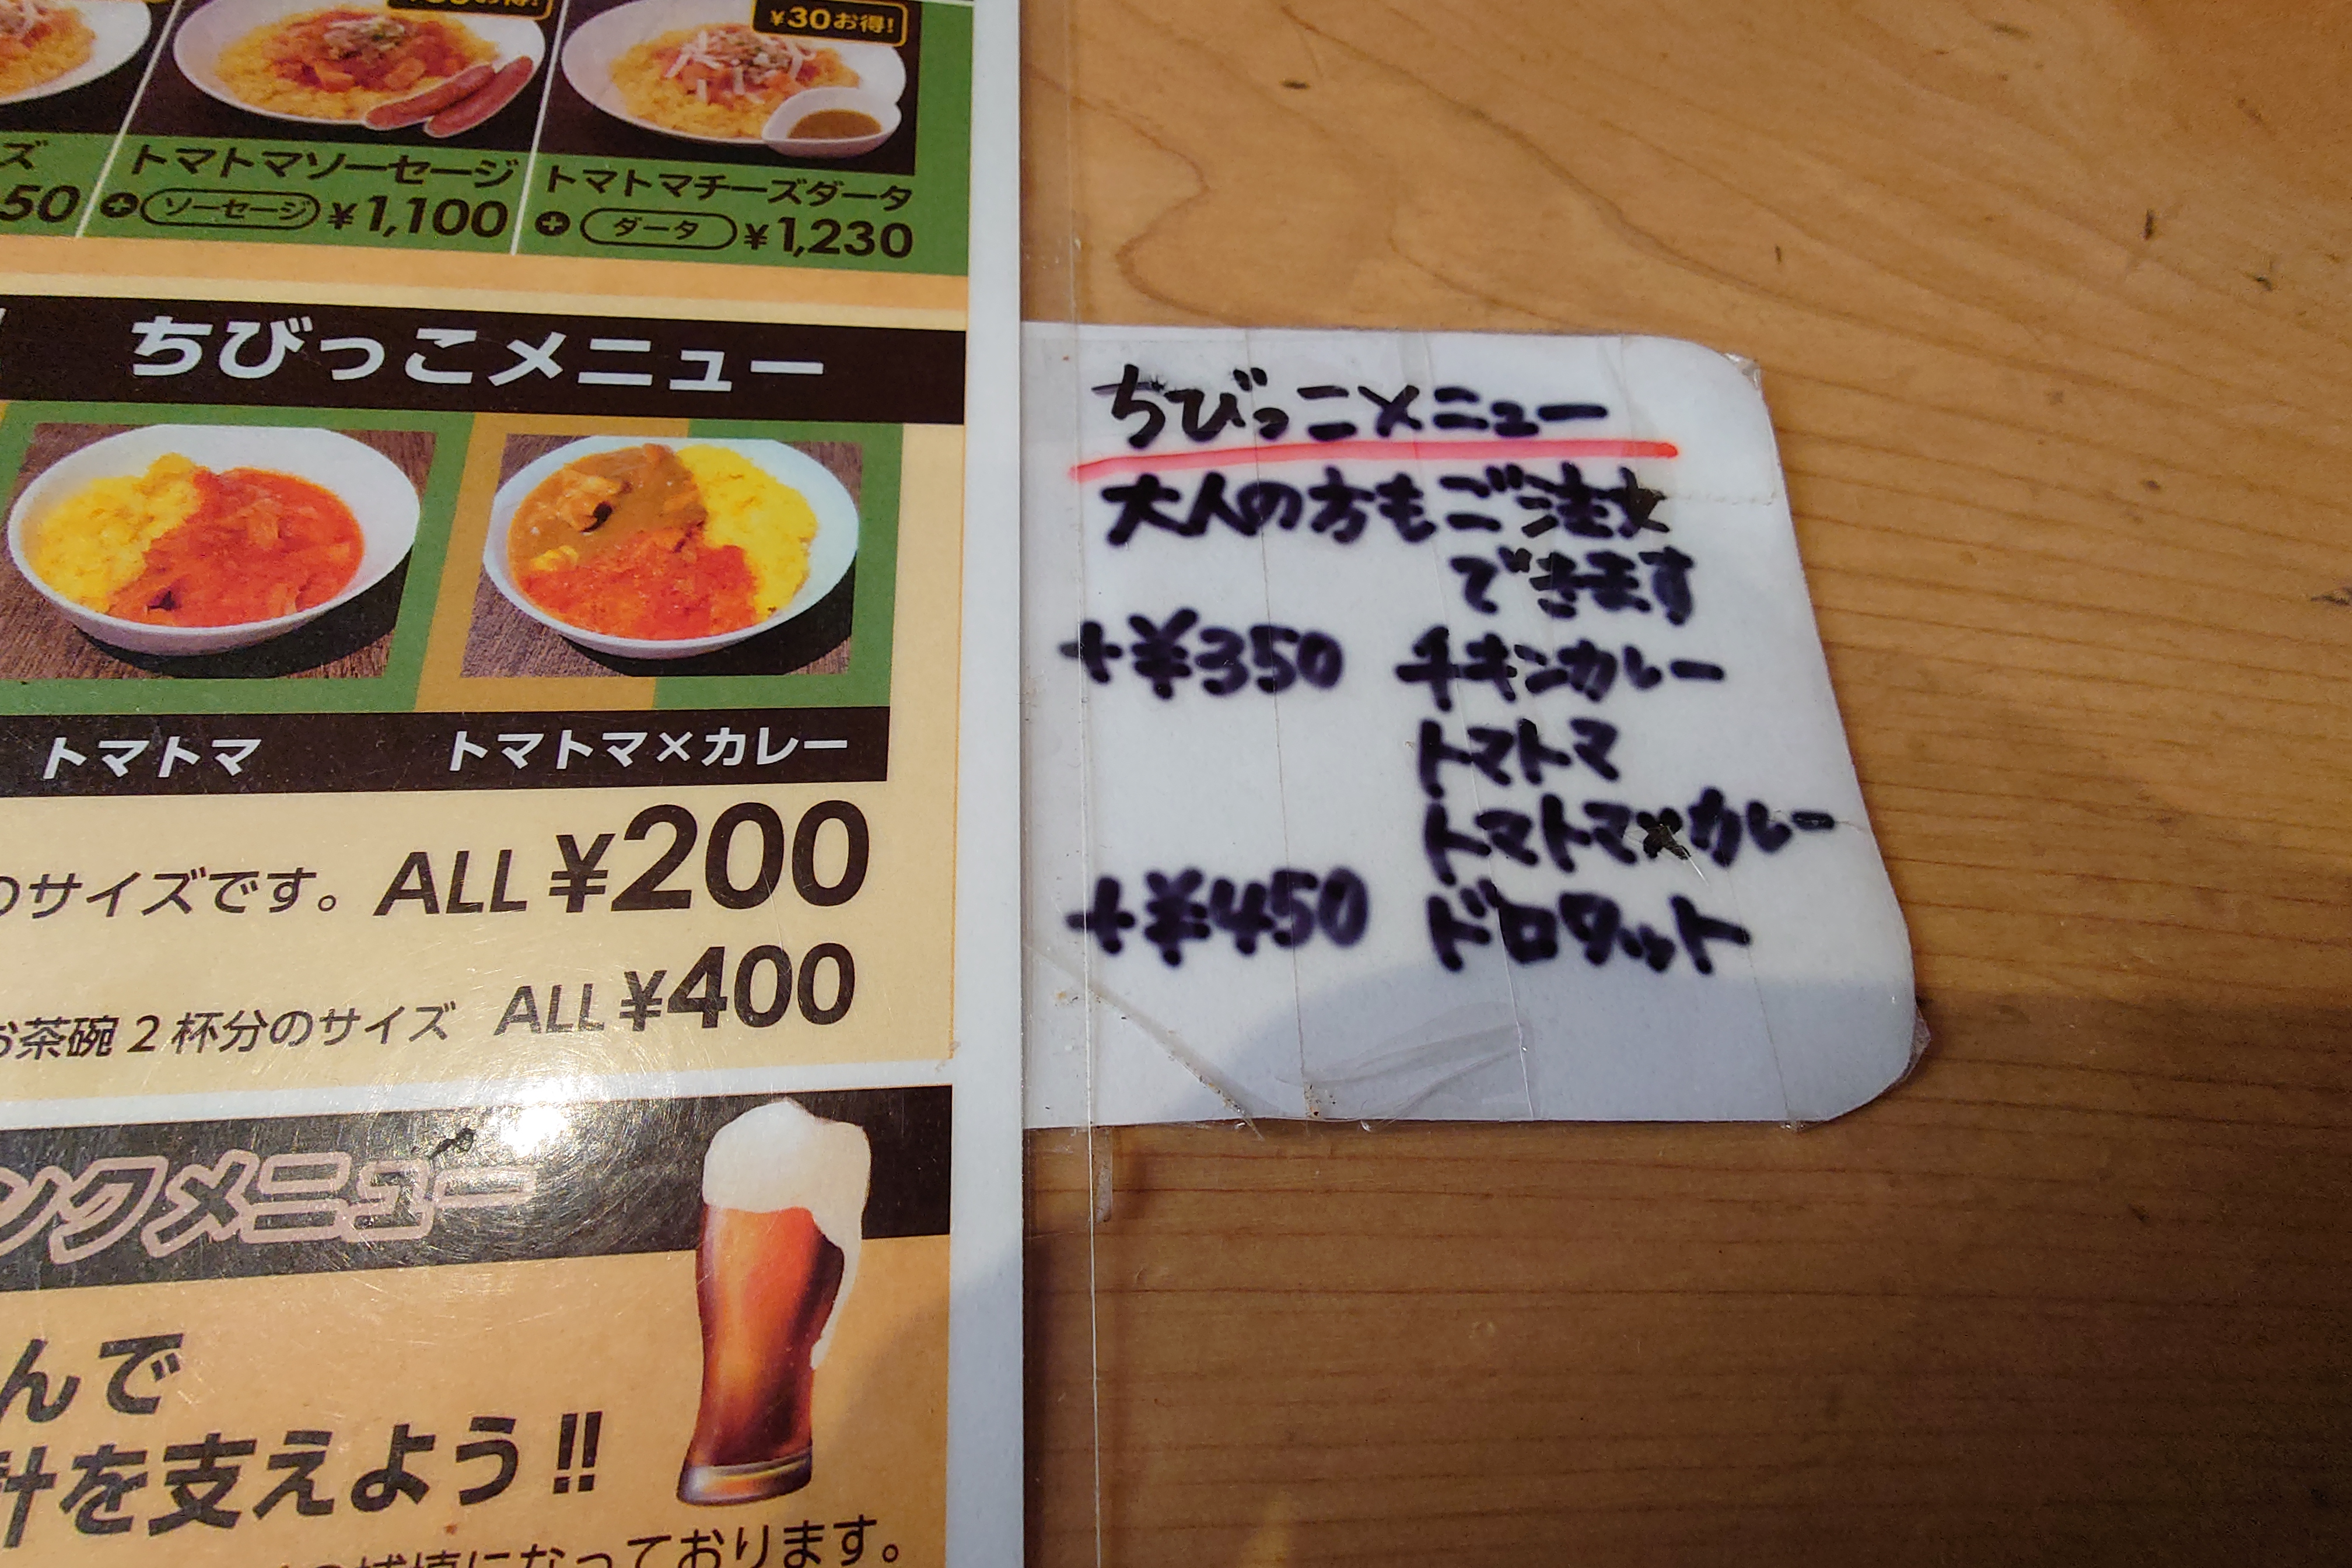 ¥30お得!
ズ
50
トマトマソーセージ
+ ソーセージ ¥1,100
トマトマチーズダータ
+ ダータ ¥1,230
ちびっこメニュー
トマトマ
トマトマ×カレー
のサイズです。 ALL ¥200
お茶碗2杯分のサイズ ALL ¥400
ンクメニュー
んで
計を支えよう!!
になっております。
ちびっこメニュー
大人の方もご注文
できます
+¥350 チキンカレー
トマトマ
トマトマ×カレー
+¥450 ドロタット